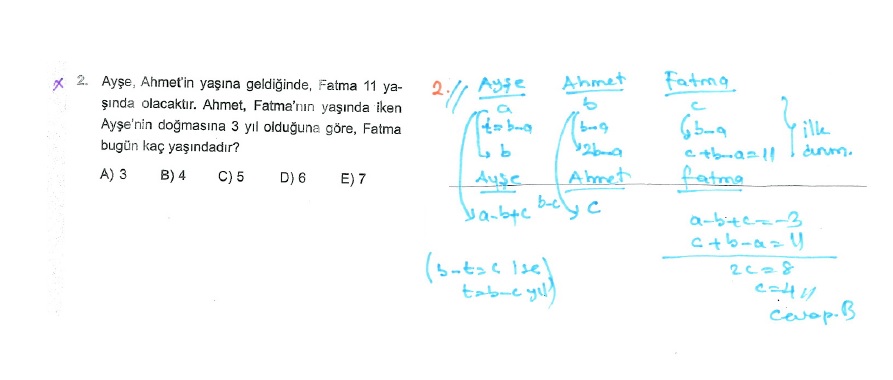 2. Ayşe, Ahmet'in yaşına geldiğinde, Fatma 11 ya-
şında olacaktır. Ahmet, Fatma'nın yaşında iken
Ayşe'nin doğmasına 3 yıl olduğuna göre, Fatma
bugün kaç yaşındadır?
A) 3 B) 4 C) 5 D) 6 E) 7
2.// Ayşe Ahmet Fatma
a b c
t=b-a b-a b-a
b 2b-a c+b-a=11
ilk
durum.
Ayşe Ahmet fatma
a-b+c b-c c
a-b+c=-3
c+b-a=11
2c=8
c=4//
Cevap.B
(b-t=c ise
t=b-c yıl)